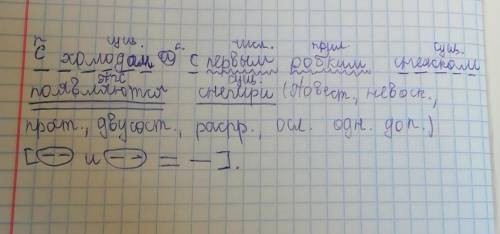 п. сущ. с. числ. прил. сущ.
С холодами и с первым робким снежком
гл. сущ.
появляются снегири (Повест., невоскл.,
прост., двусост., распр., осл. одн. доп.)
[ и = — ].